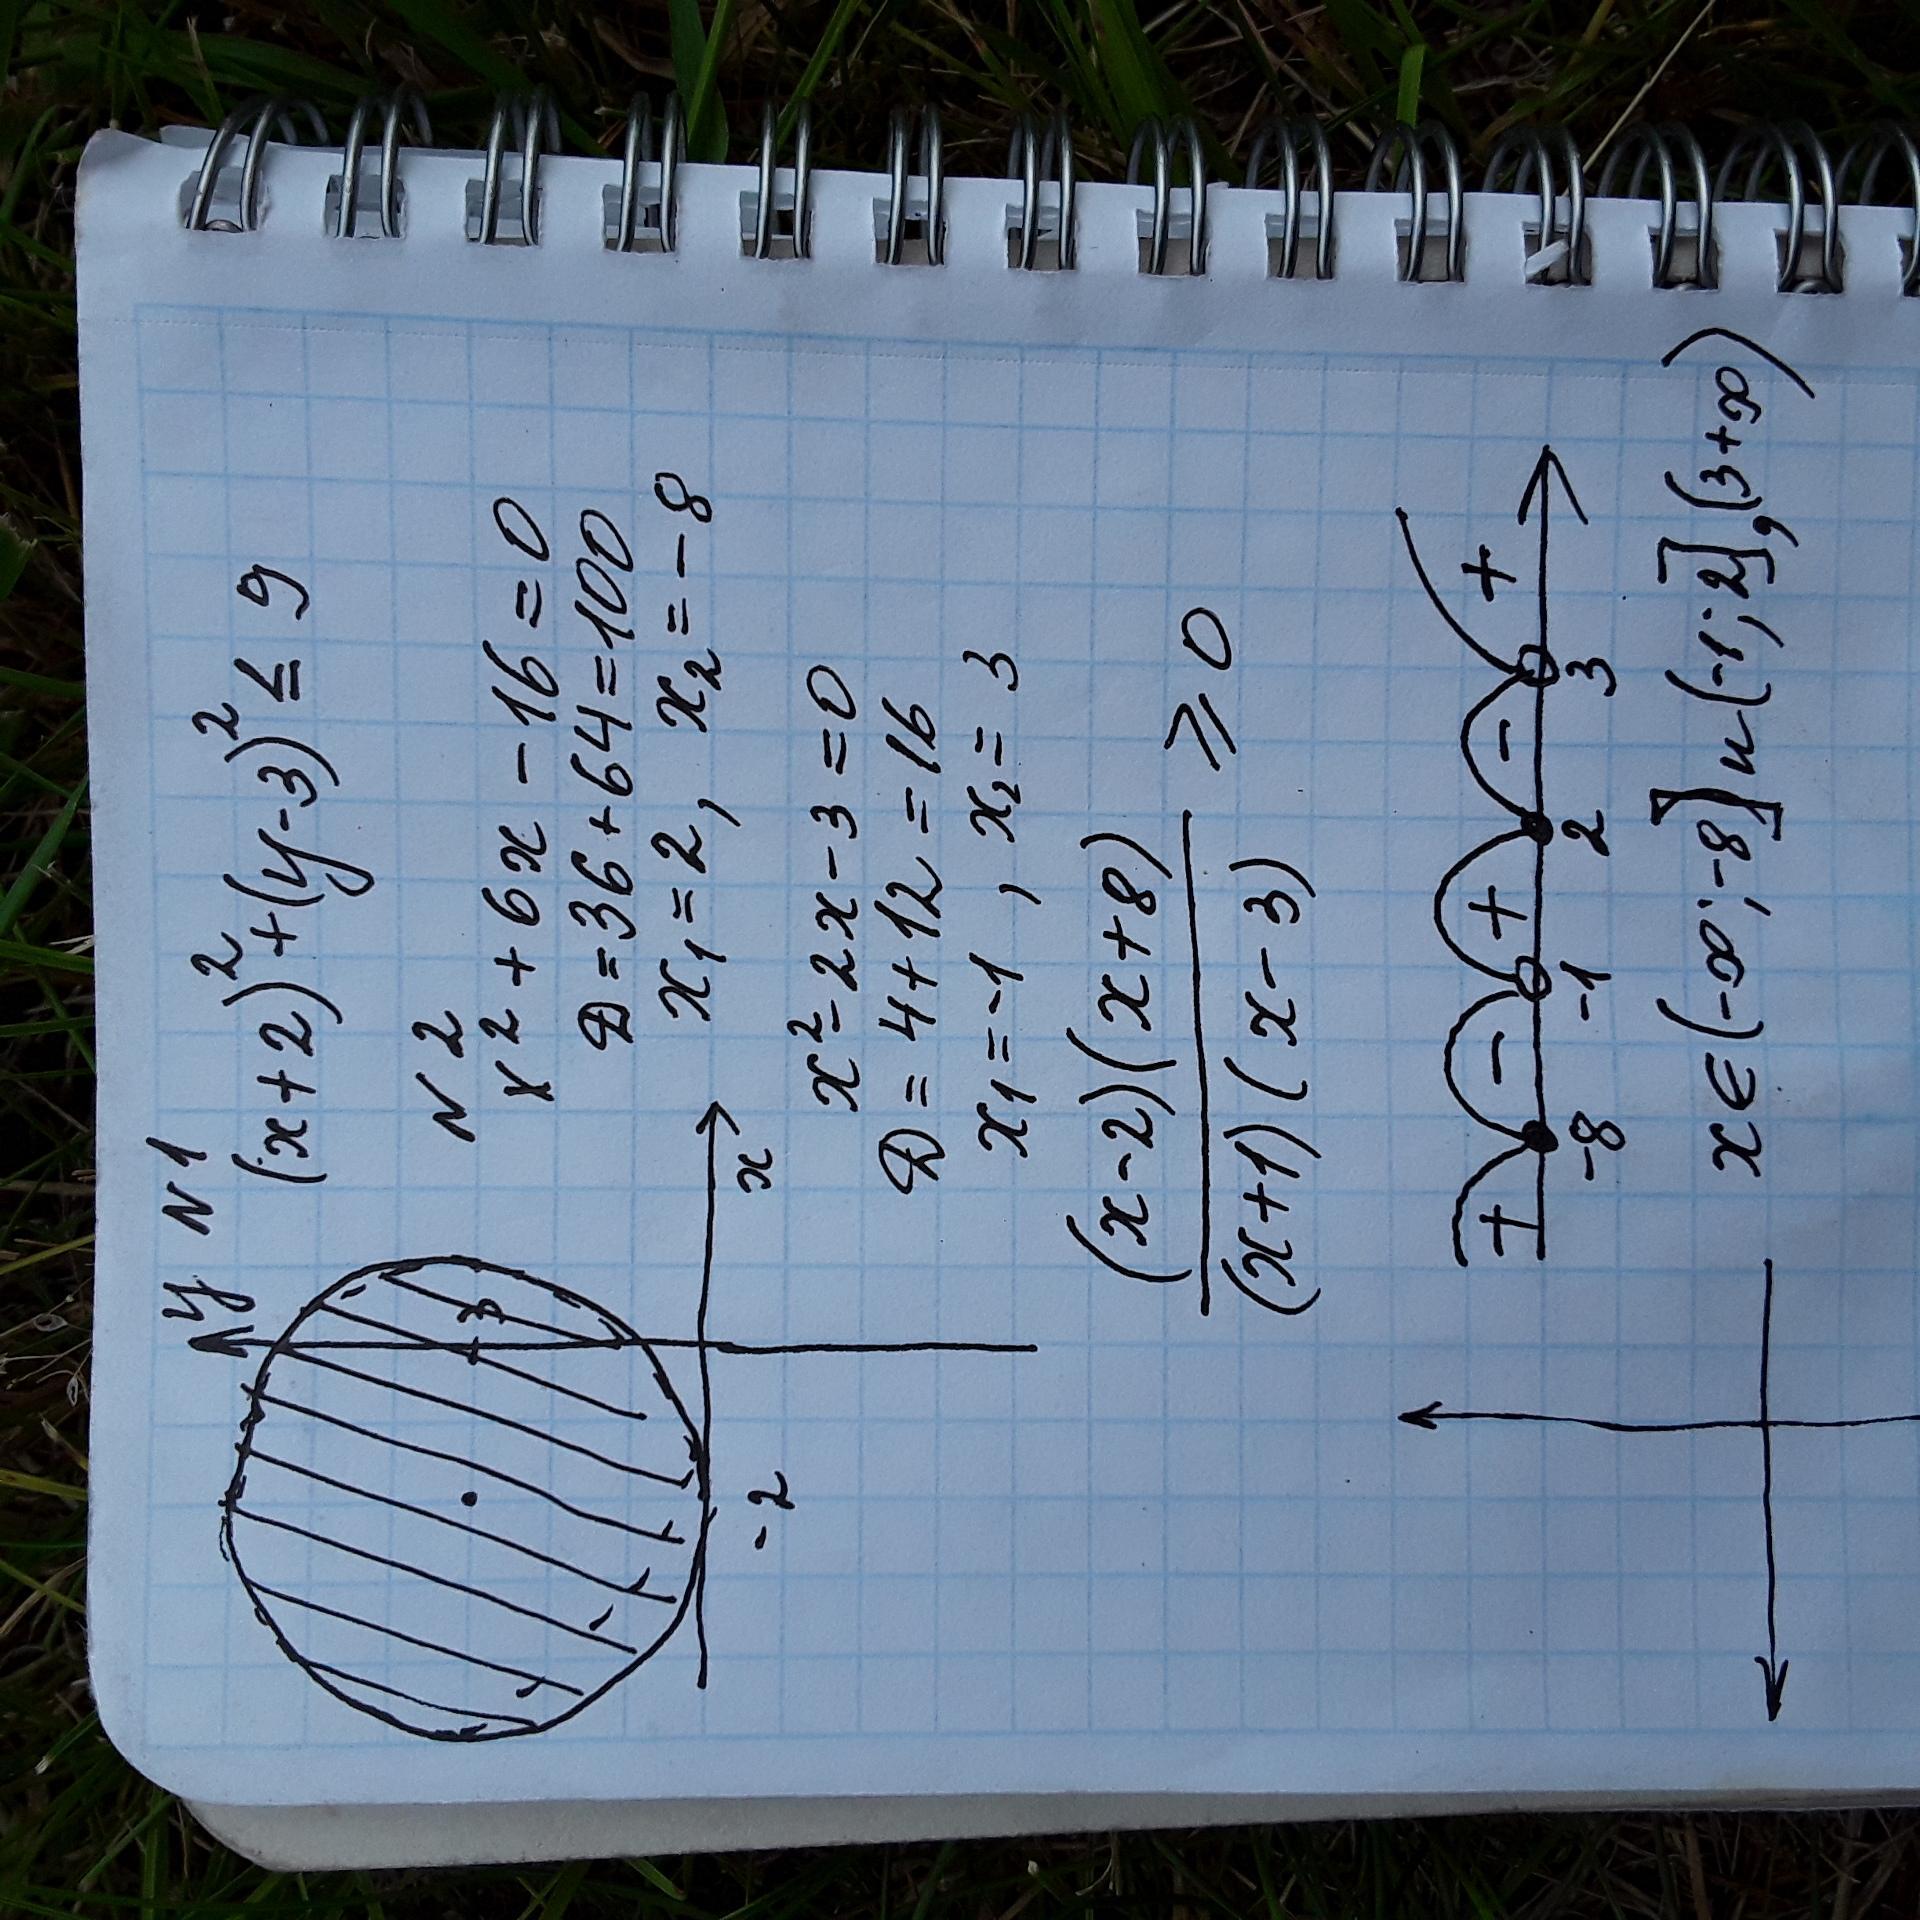 y
N1
(x+2)²+(y-3)² ≤ 9
3
x
-2
N2
x²+6x-16=0
D=36+64=100
x₁=2, x₂=-8
x²-2x-3=0
D=4+12=16
x₁=-1, x₂=3
(x-2)(x+8)
(x+1)(x-3)
⩾ 0
+ - + - +
-8 -1 2 3
x∈(-∞;-8]и(-1;2],(3+∞)